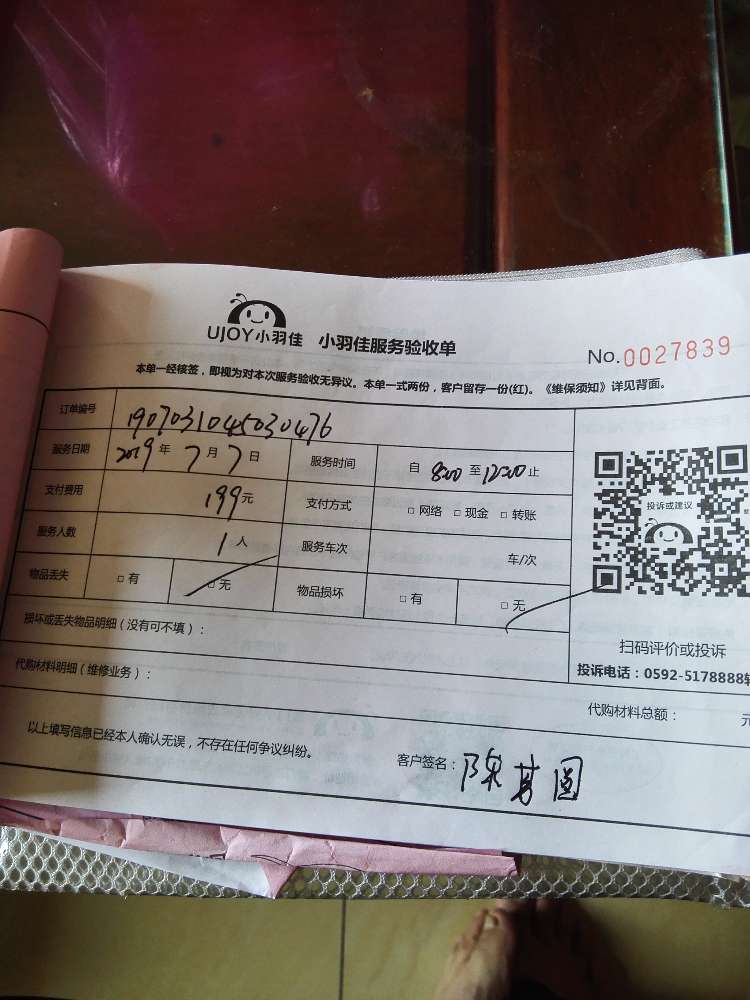 UJOY小羽佳 小羽佳服务验收单
No.0027839
本单一经核签，即视为对本次服务验收无异议。本单一式两份，客户留存一份(红)。《维保须知》详见背面。
订单编号 1907031045030476
服务日期 2019年7月7日 服务时间 自 8:00 至 12:00 止
支付费用 199元 支付方式 □ 网络 □ 现金 □ 转账
服务人数 1人 服务车次 车/次
物品丢失 □ 有 □ 无 物品损坏 □ 有 □ 无
投诉或建议
扫码评价或投诉
投诉电话：0592-5178888转
损坏或丢失物品明细（没有可不填）：
代购材料明细（维修业务）：
代购材料总额： 元
以上填写信息已经本人确认无误，不存在任何争议纠纷。
客户签名：陈芳圆